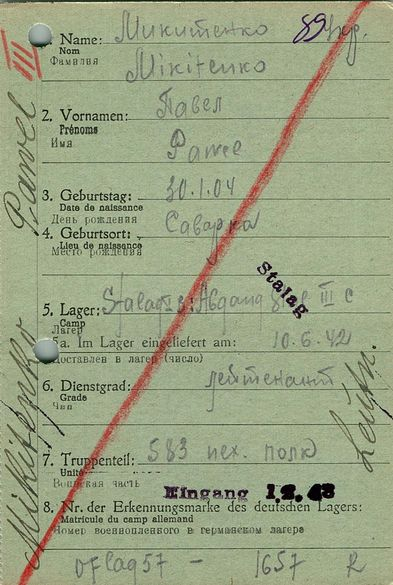 III
1. Name: Микитенко 89 Укр.
Nom
Фамилия Mikitenko
2. Vornamen: Павел
Prénoms
Имя Pawel
3. Geburtstag: 30.1.04
Date de naissance
День рождения
4. Geburtsort: Саварка
Lieu de naissance
Место рождения
Stalag
5. Lager: Stalag Abgang III C
Camp
Лагерь
5a. Im Lager eingeliefert am: 10.6.42
Доставлен в лагерь (число)
6. Dienstgrad: лейтенант
Grade
Чин
Leutn.
7. Truppenteil: 583 пех. полк
Unité
Воинская часть
Eingang 1.2.43
8. Nr. der Erkennungsmarke des deutschen Lagers:
Matricule du camp allemand
Номер военнопленного в германском лагере
oflag 57 - 1657 R
Mikitenko Pawel